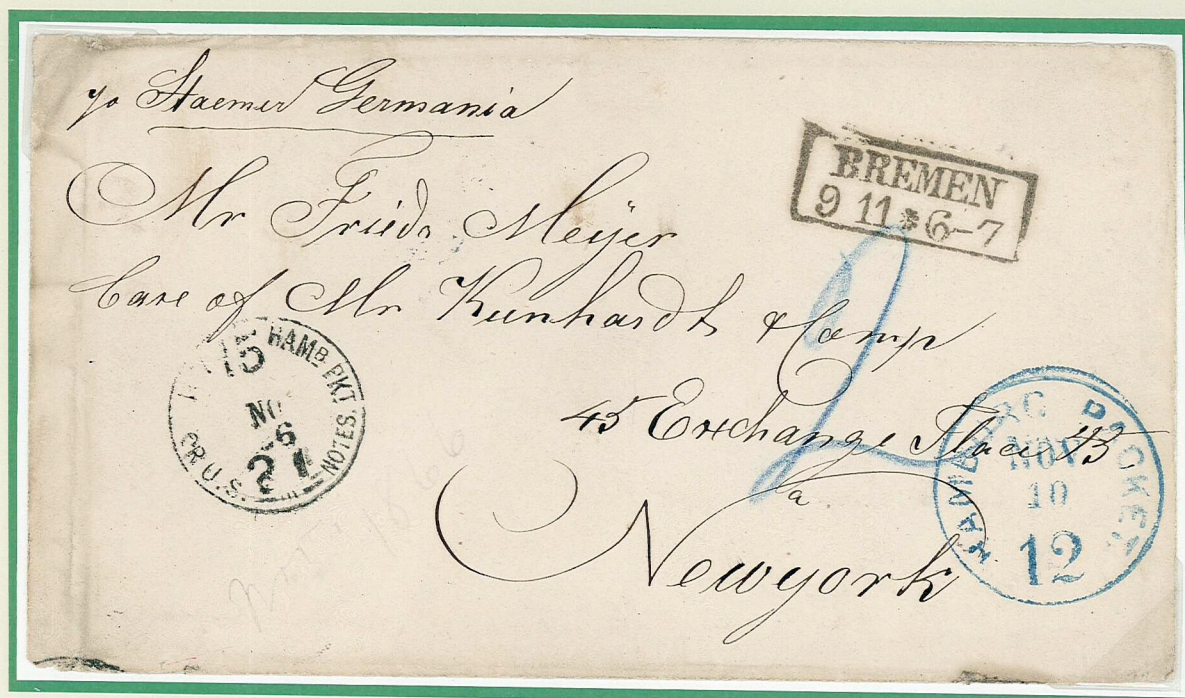 po Staemer Germania
BREMEN
9 11 * 6-7
Mr Friedr Meÿer
Care of Mr Kunhardt & Comp
45 Exchange Place 45
a
Newyork
2
15 HAMB. PKT.
NOV
26
21
OR U.S. NOTES.
HAMBURG PACKET
NOV
10
12